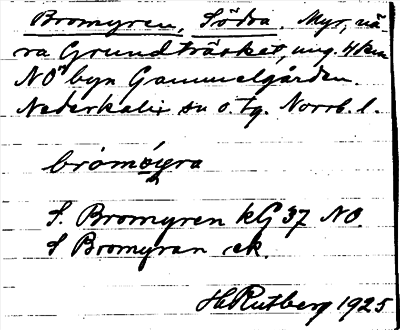 Bromyren, Södra. Myr, nä-
ra Grundträsket, ung. 4 km
NO byn Gammelgården.
Nederkalix sn o. tg. Norrb. l.
S. Bromyren kG 37 NO.
S Bromyran ek.
H. Rutberg 1925